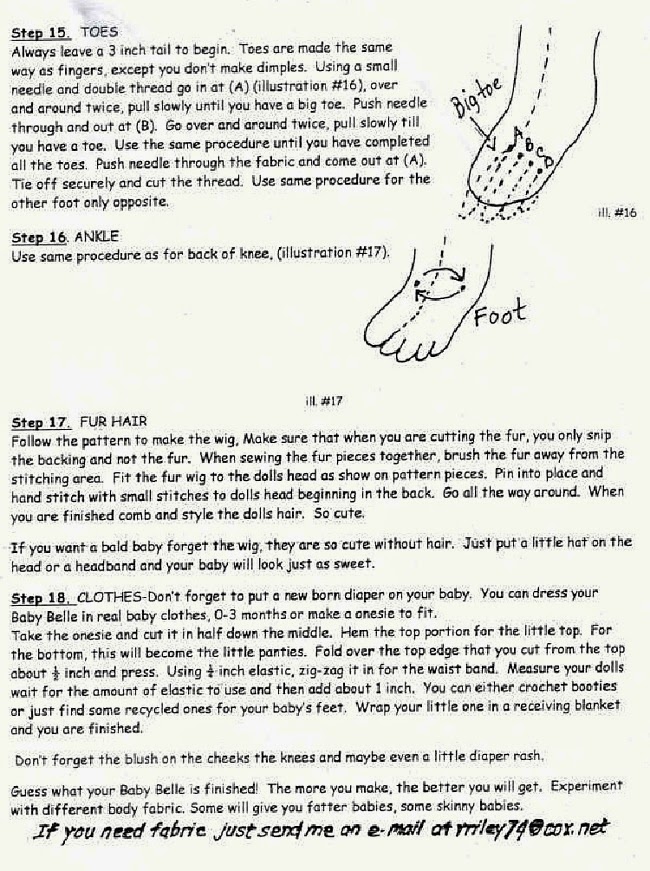 Step 15. TOES
Always leave a 3 inch tail to begin. Toes are made the same
way as fingers, except you don't make dimples. Using a small
needle and double thread go in at (A) (illustration #16), over
and around twice, pull slowly until you have a big toe. Push needle
through and out at (B). Go over and around twice, pull slowly till
you have a toe. Use the same procedure until you have completed
all the toes. Push needle through the fabric and come out at (A).
Tie off securely and cut the thread. Use same procedure for the
other foot only opposite.
Big toe
A
B
C
D
ill. #16
Step 16. ANKLE
Use same procedure as for back of knee, (illustration #17).
Foot
ill. #17
Step 17. FUR HAIR
Follow the pattern to make the wig, Make sure that when you are cutting the fur, you only snip
the backing and not the fur. When sewing the fur pieces together, brush the fur away from the
stitching area. Fit the fur wig to the dolls head as show on pattern pieces. Pin into place and
hand stitch with small stitches to dolls head beginning in the back. Go all the way around. When
you are finished comb and style the dolls hair. So cute.
If you want a bald baby forget the wig, they are so cute without hair. Just put a little hat on the
head or a headband and your baby will look just as sweet.
Step 18. CLOTHES-Don't forget to put a new born diaper on your baby. You can dress your
Baby Belle in real baby clothes, 0-3 months or make a onesie to fit.
Take the onesie and cut it in half down the middle. Hem the top portion for the little top. For
the bottom, this will become the little panties. Fold over the top edge that you cut from the top
about ½ inch and press. Using inch elastic, zig-zag it in for the waist band. Measure your dolls
wait for the amount of elastic to use and then add about 1 inch. You can either crochet booties
or just find some recycled ones for your baby's feet. Wrap your little one in a receiving blanket
and you are finished.
Don't forget the blush on the cheeks the knees and maybe even a little diaper rash.
Guess what your Baby Belle is finished! The more you make, the better you will get. Experiment
with different body fabric. Some will give you fatter babies, some skinny babies.
If you need fabric just send me an e-mail at rriley74@cox.net